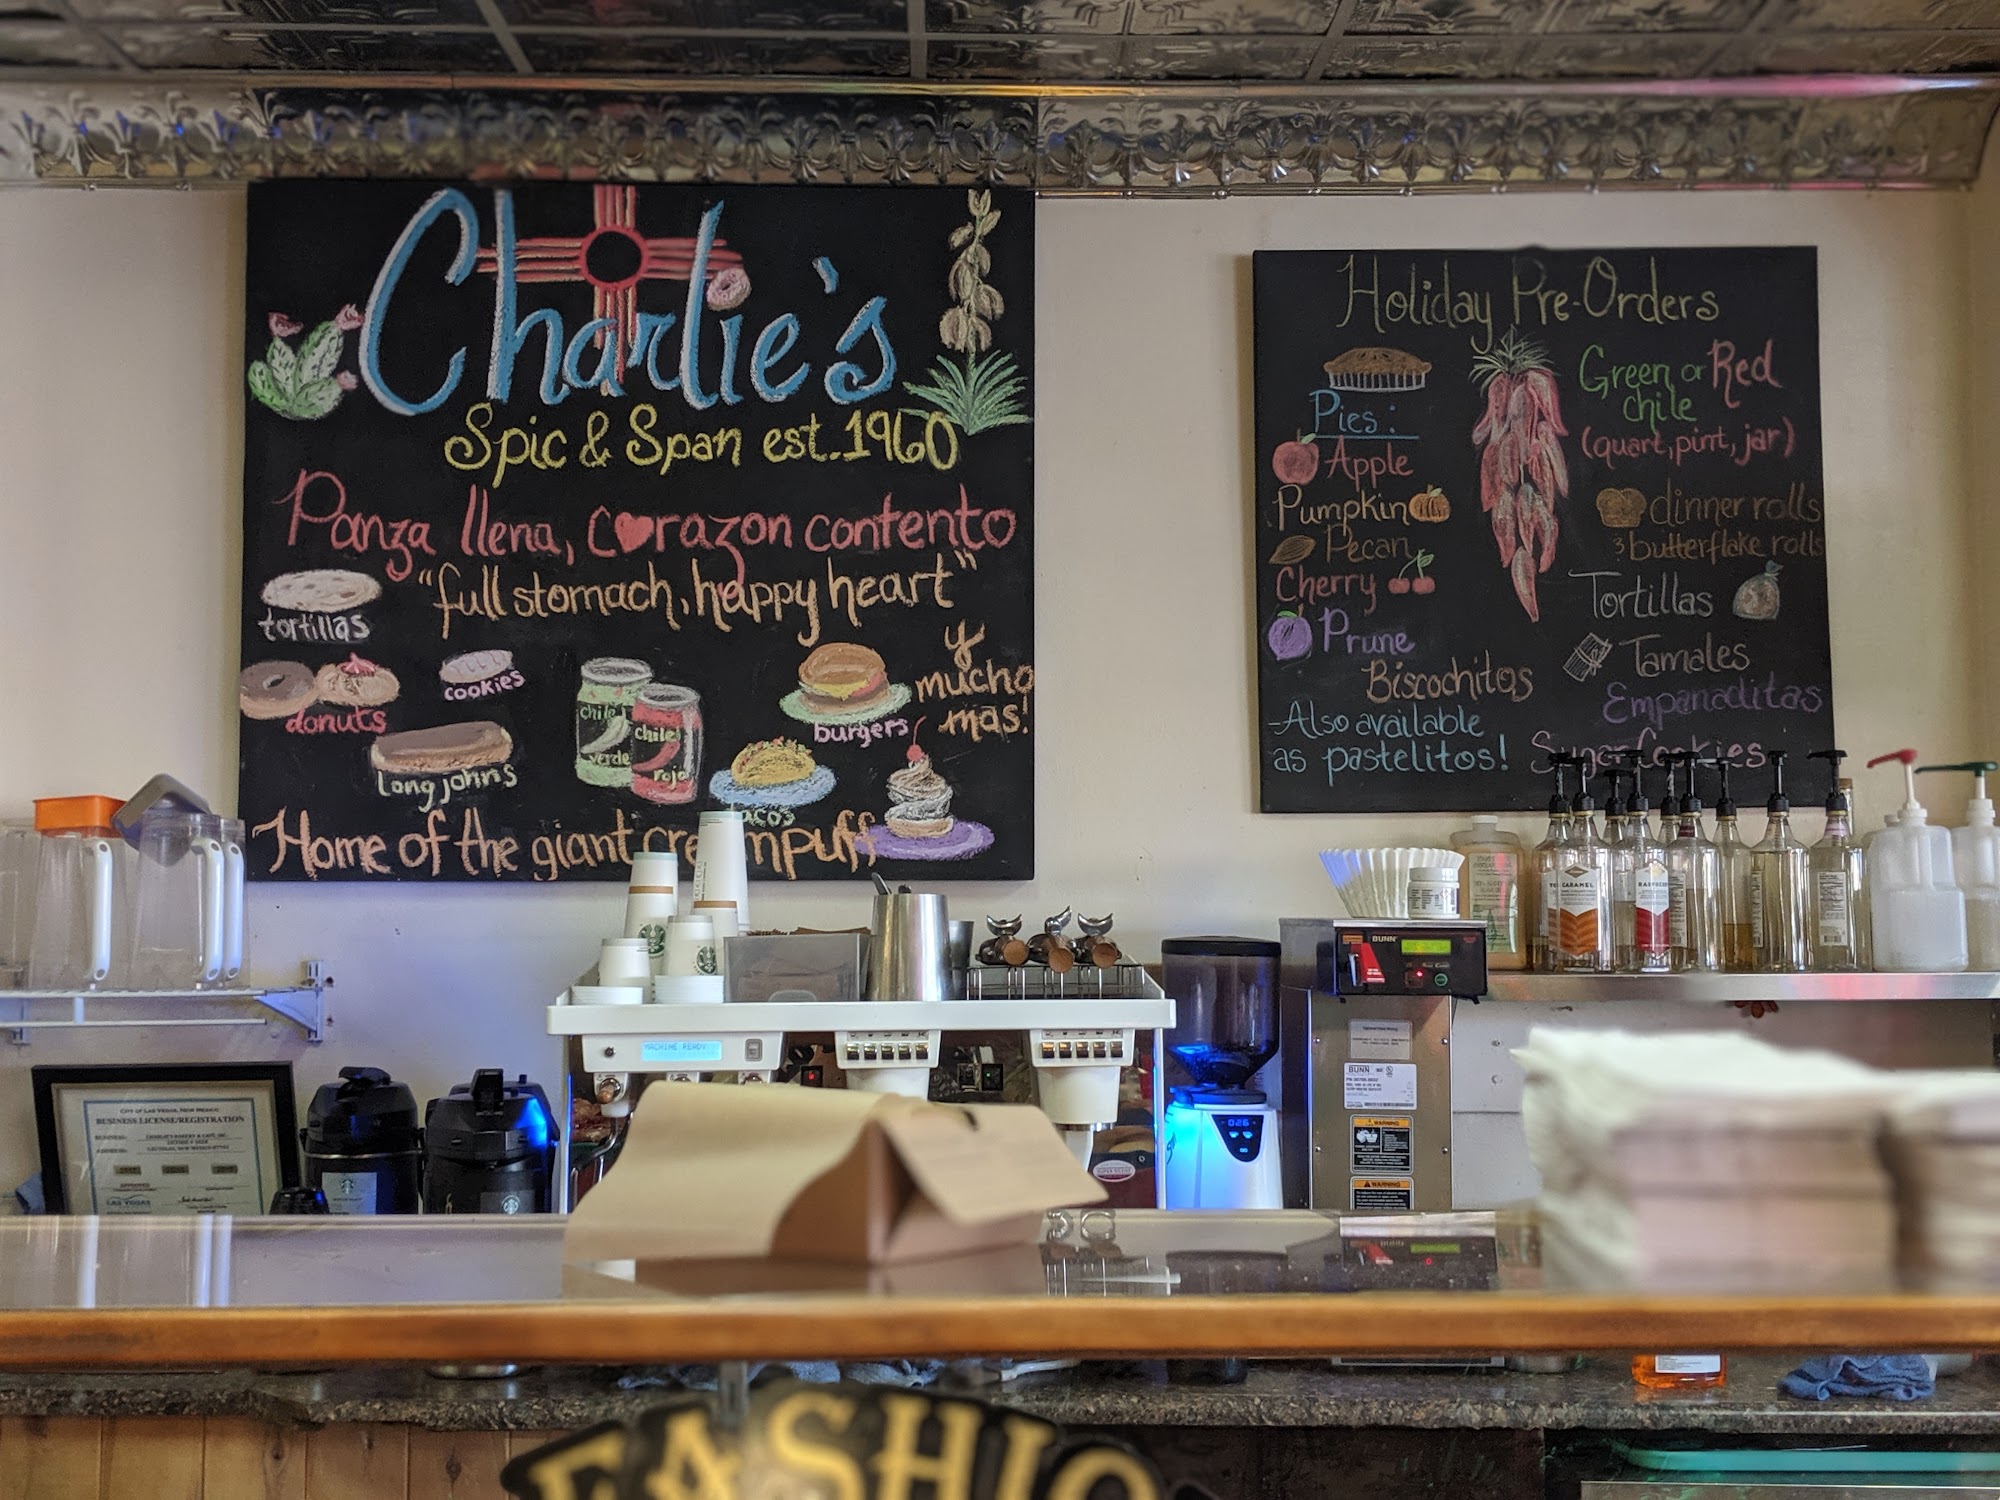 Charlie's
Spic & Span est. 1960
Panza llena, corazon contento
"full stomach, happy heart"
y
mucho
mas!
tortillas
donuts
cookies
long johns
chile
verde
chile
rojo
burgers
tacos
Home of the giant creampuff
Holiday Pre-Orders
Pies:
Apple
Pumpkin
Pecan
Cherry
Prune
Biscochitos
-Also available
as pastelitos!
Green or Red
chile
(quart, pint, jar)
dinner rolls
& butterflake rolls
Tortillas
Tamales
Empanaditas
Sugar Cookies
CARAMEL
RASPBERRY
BUNN
MACHINE READY
026
BUNN
WARNING
WARNING
CITY OF LAS VEGAS, NEW MEXICO
BUSINESS LICENSE/REGISTRATION
BUSINESS: CHARLIE'S BAKERY & CAFE, INC.
ADDRESS:
LAS VEGAS, NEW MEXICO 87701
LAS VEGAS
FASHIO